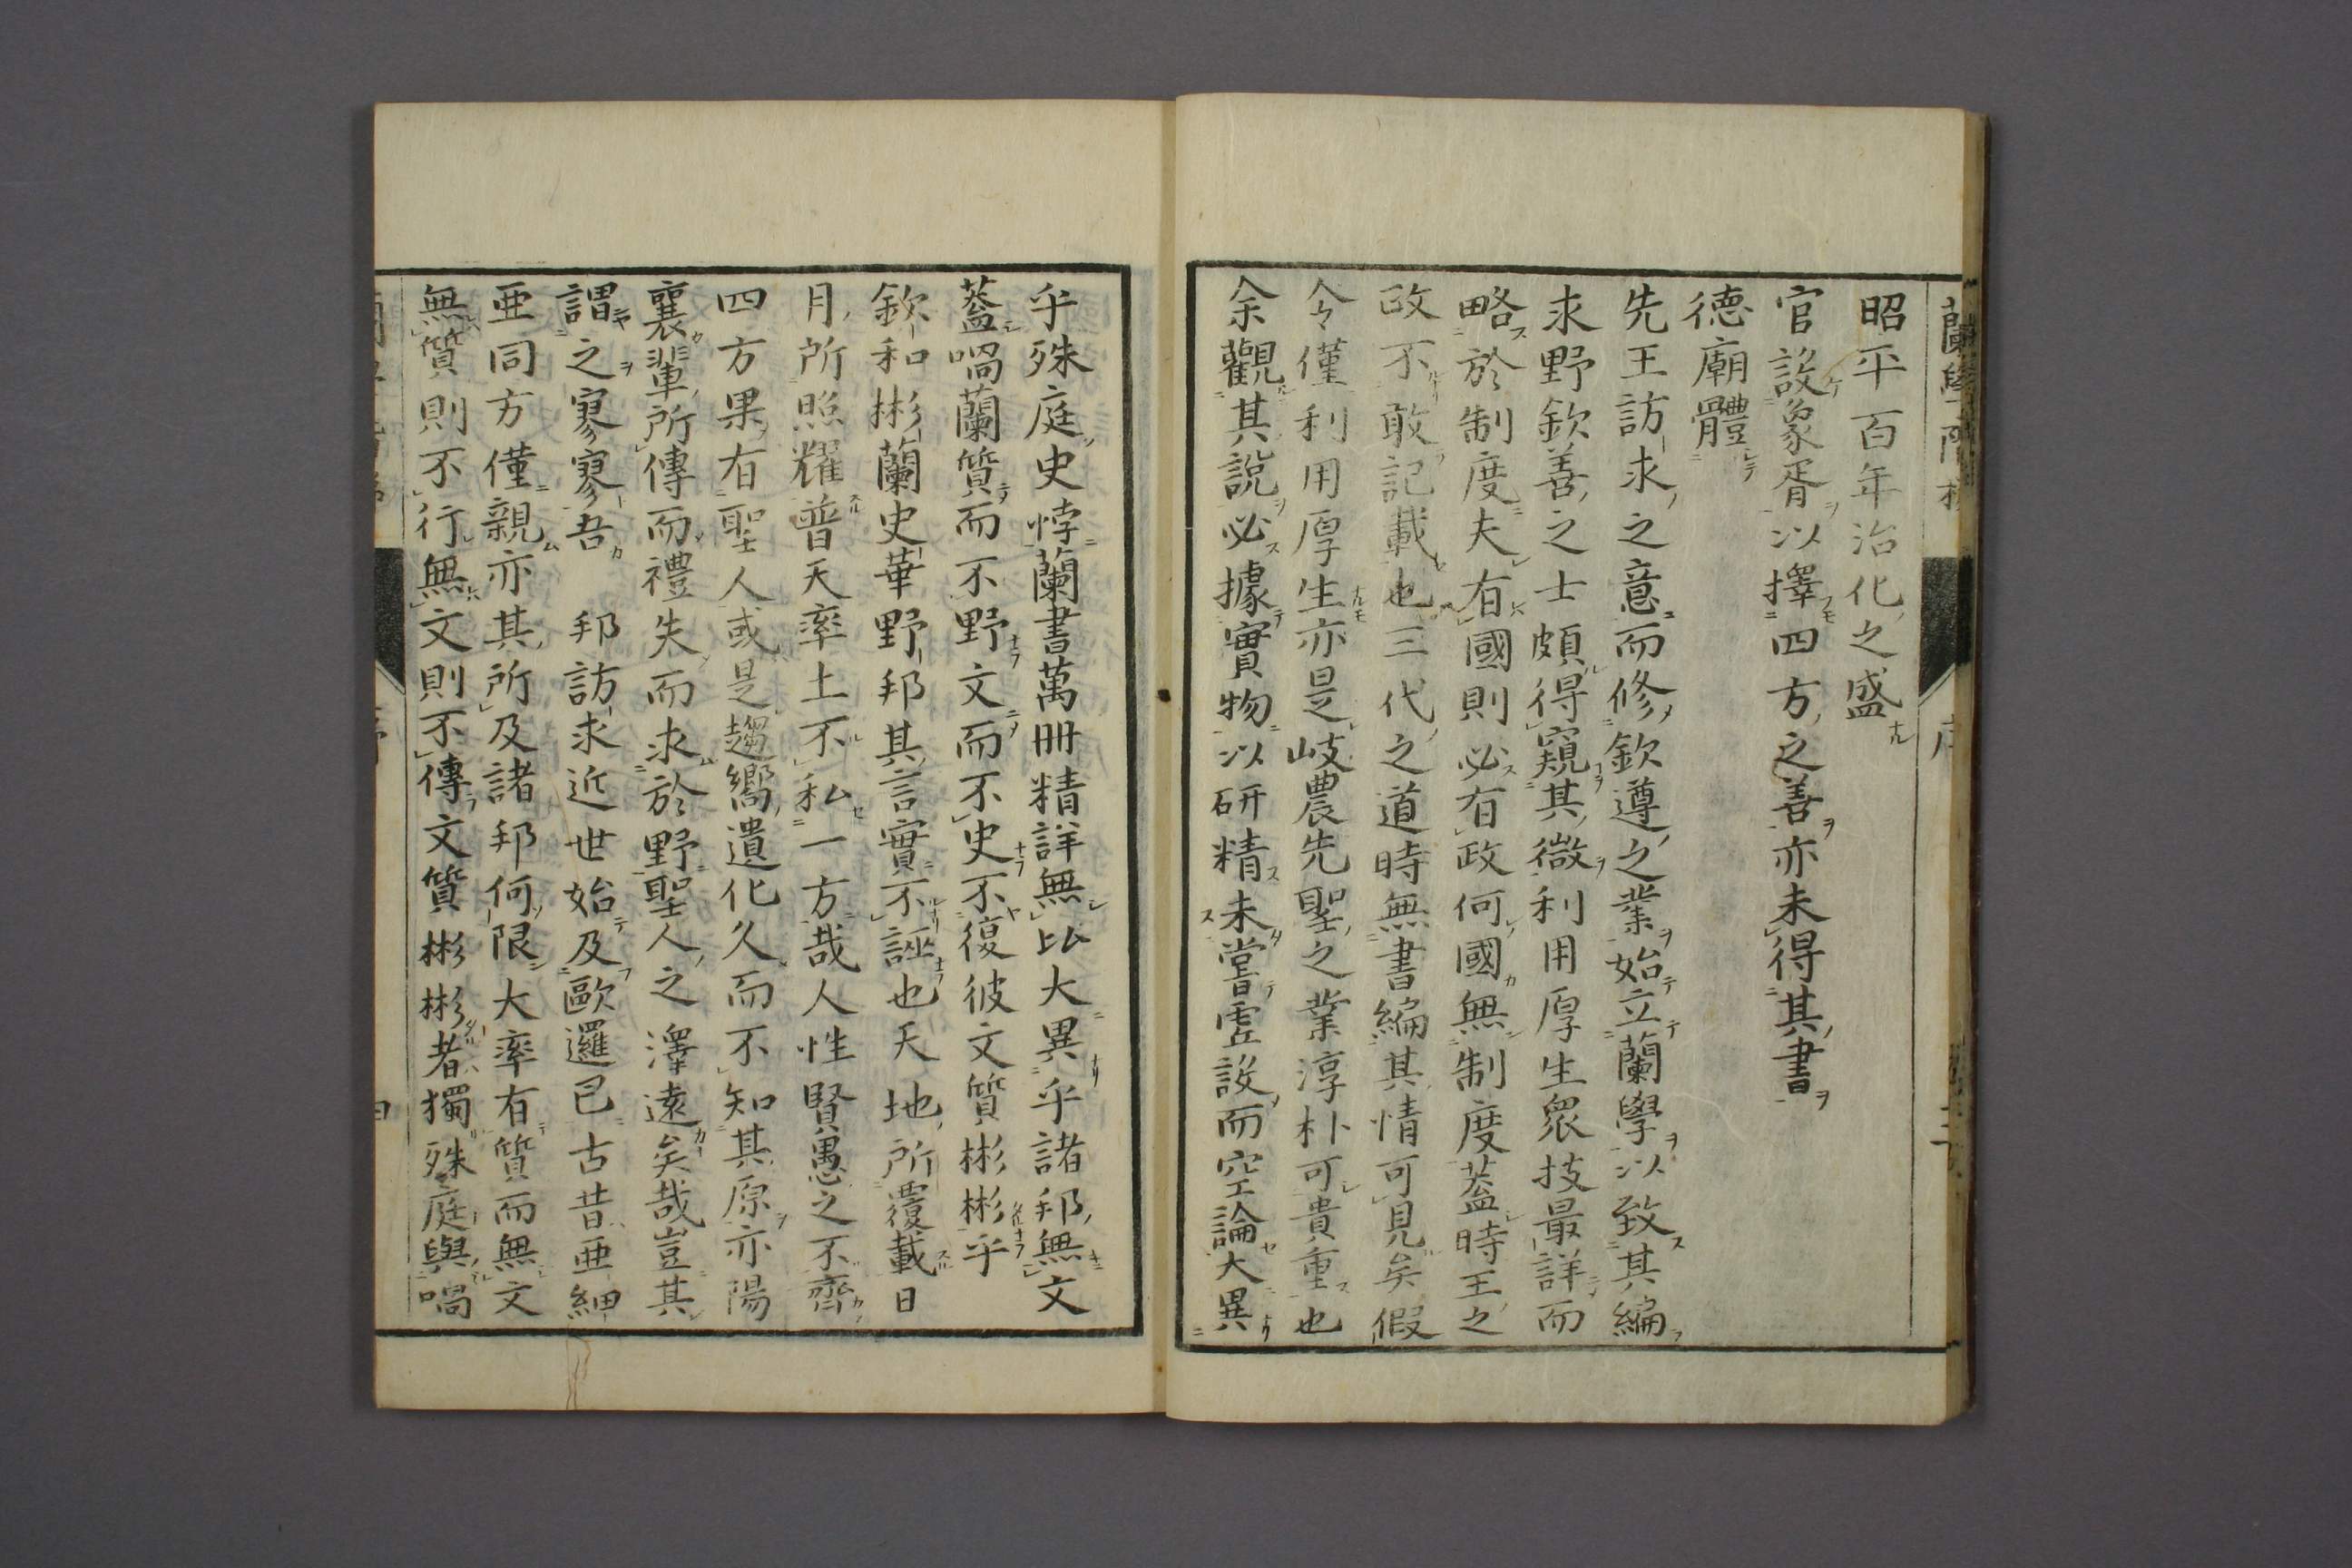 昭平百年治化之盛
官設象胥以擇四方之善亦未得其書
德廟體
先王訪求之意而修欽遵之業始立蘭學以致其編
求野欽善之士頗得窺其微利用厚生衆技最詳而
略於制度夫有國則必有政何國無制度蓋時王之
政不敢記載也三代之道時無書編其情可見矣假
令僅利用厚生亦是岐農先聖之業淳朴可貴重也
余觀其說必據實物以研精未嘗虛設而空論大異
乎殊庭史悖蘭書萬冊精詳無比大異乎諸邦無文
蓋喎蘭質而不野文而不史不復彼文質彬彬乎
欽和彬蘭史華野邦其言實不誣也天地所覆載日
月所照耀普天率土不私一方哉人性賢愚之不齊
四方果有聖人或是趨嚮遺化久而不知其原亦陽
襄輩所傳而禮失而求於野聖人之澤遠矣哉豈其
謂之寥寥吾邦訪求近世始及歐邏巴古昔亜細
亜同方僅親亦其所及諸邦何限大率有質而無文
無質則不行無文則不傳文質彬彬者獨殊庭與喎